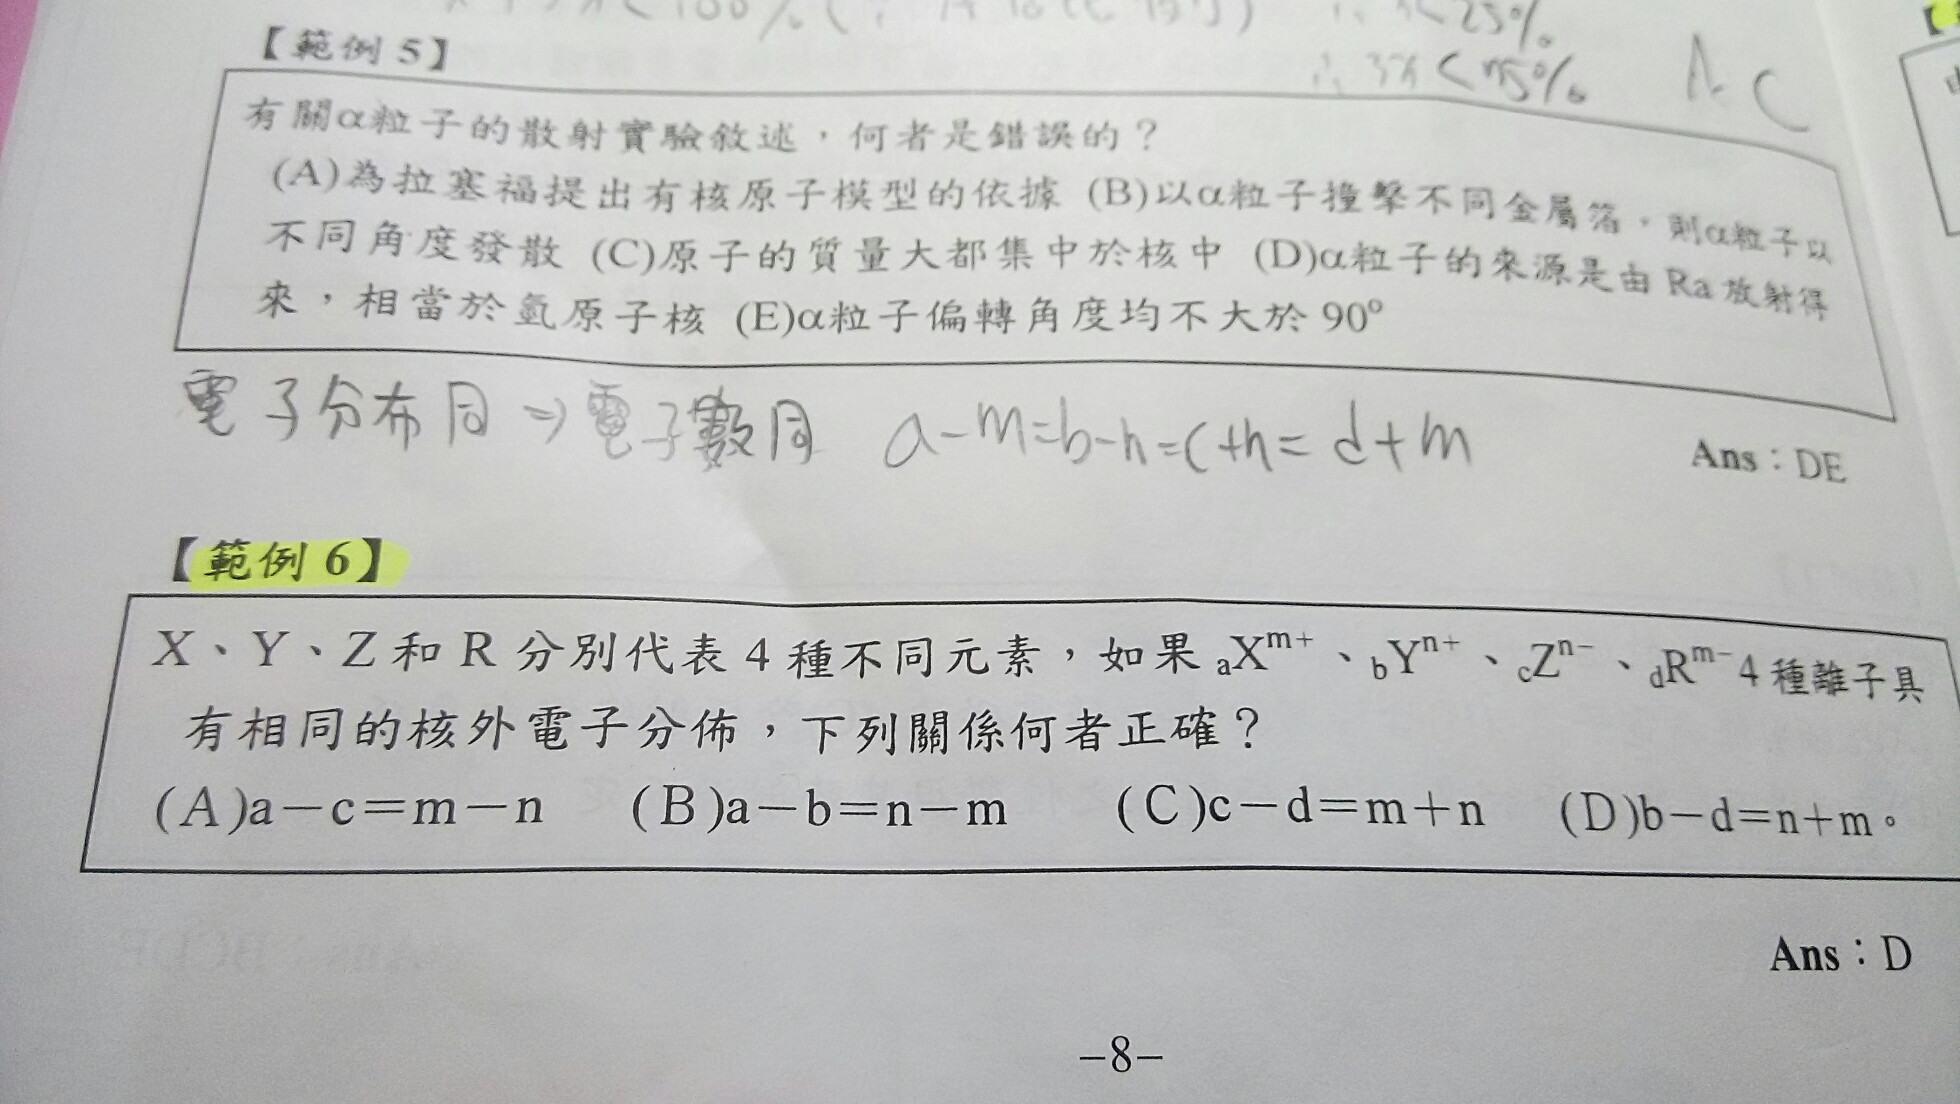 ∴ x<25%
【範例 5】
∴ 3x<75% AC
有關α粒子的散射實驗敘述，何者是錯誤的？
(A)為拉塞福提出有核原子模型的依據 (B)以α粒子撞擊不同金屬箔，則α粒子以
不同角度發散 (C)原子的質量大都集中於核中 (D)α粒子的來源是由 Ra 放射得
來，相當於氫原子核 (E)α粒子偏轉角度均不大於 90°
電子分布同⇒電子數同 a-m=b-n=c+n=d+m
Ans：DE
【範例 6】
X、Y、Z 和 R 分別代表 4 種不同元素，如果 ₐXᵐ⁺、bYⁿ⁺、cZⁿ⁻、dRᵐ⁻ 4 種離子具
有相同的核外電子分佈，下列關係何者正確？
(A)a－c＝m－n (B)a－b＝n－m (C)c－d＝m＋n (D)b－d＝n＋m。
Ans：D
−8−